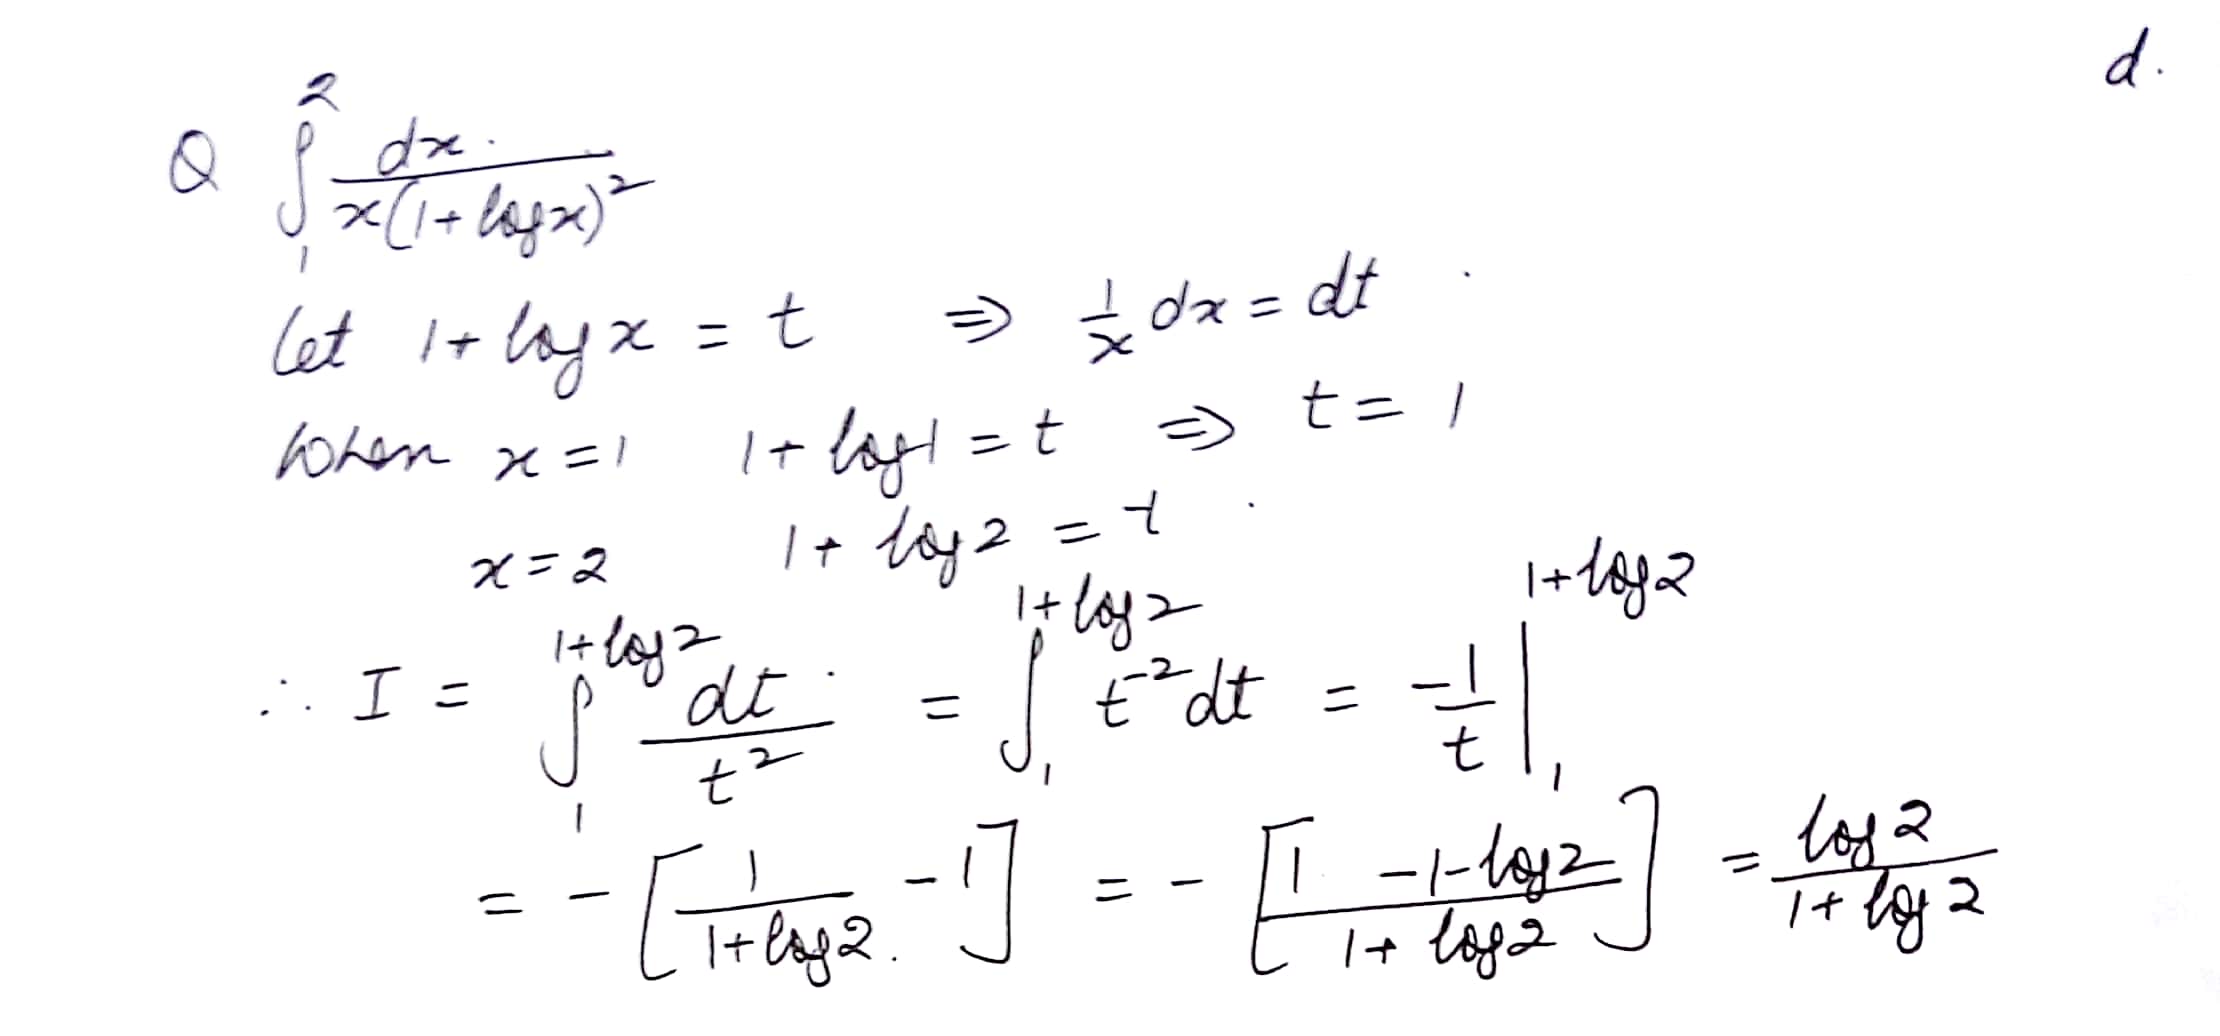 d.
Q ∫₁² dx / x(1+logx)²
Let 1+logx = t ⇒ 1/x dx = dt
When x=1 1+log1 = t ⇒ t=1
x=2 1+log2 = t
∴ I = ∫₁^(1+log2) dt/t² = ∫₁^(1+log2) t⁻² dt = -1/t |₁^(1+log2)
= -[1/(1+log2) -1] = -[(1-1-log2)/(1+log2)] = log2/(1+log2)